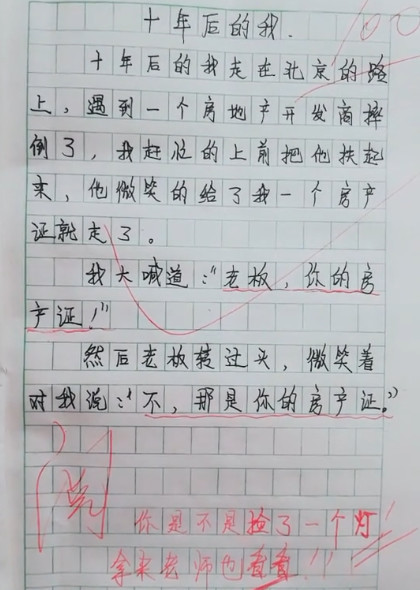 十年后的我.
100
十年后的我走在北京的路
上，遇到一个房地产开发商摔
倒了，我赶忙的上前把他扶起
来，他微笑的给了我一个房产
证就走了。
我大喊道：“老板，你的房
产证！”
然后老板转过头，微笑着
对我说：“不，那是你的房产证。”
阅
你是不是捡了一个灯
拿来老师也看看!!